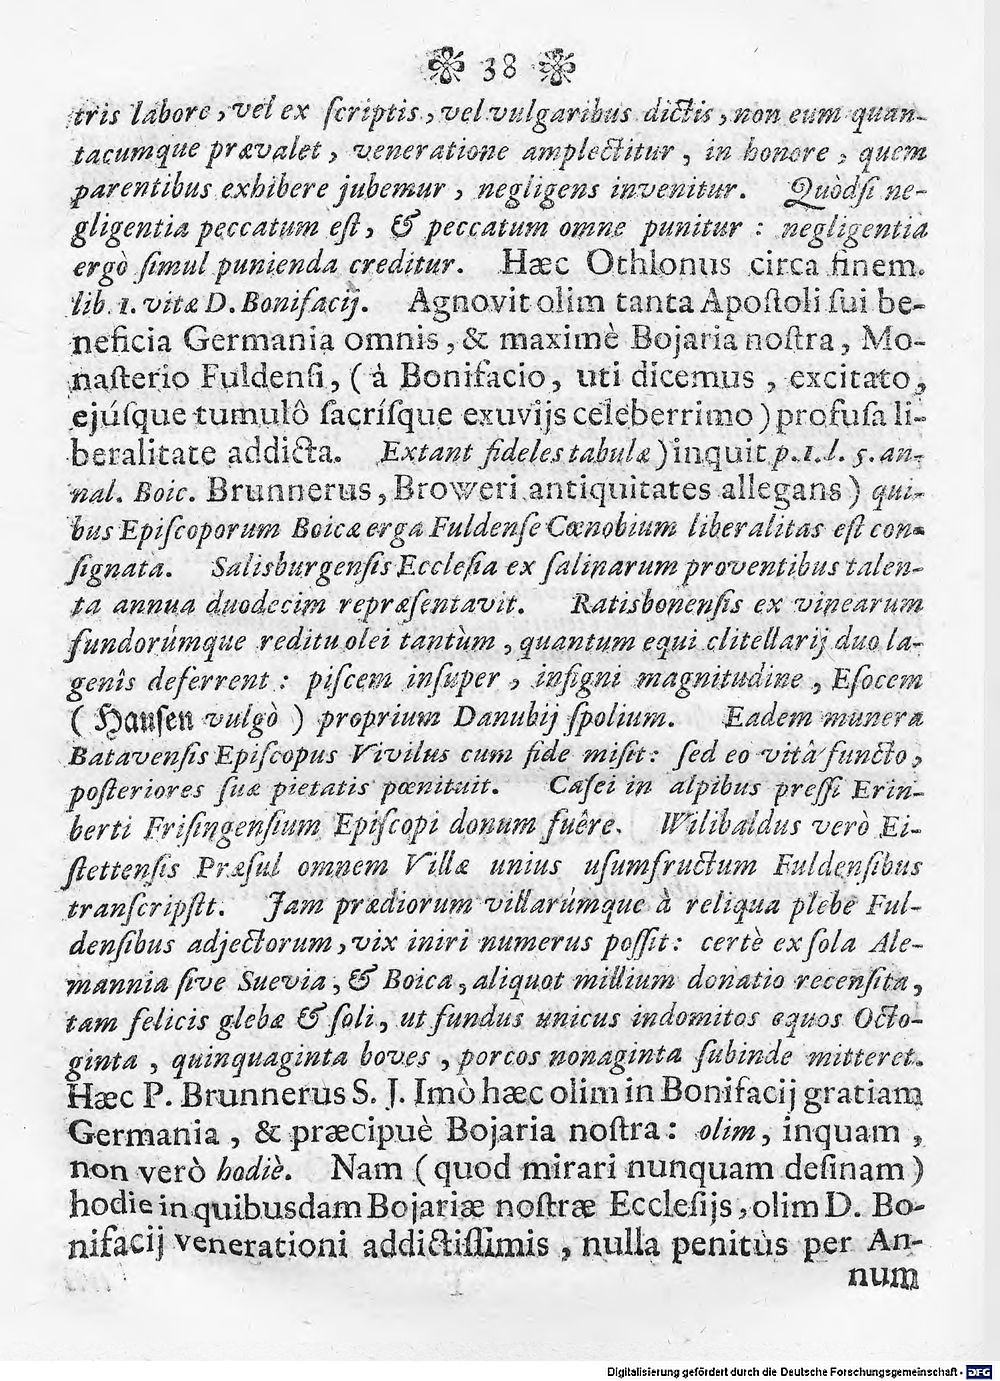 38
tris labore, vel ex ſcriptis, vel vulgaribus dictis, non eum quan-
tacumque prævalet, veneratione amplectitur, in honore, quem
parentibus exhibere jubemur, negligens invenitur. Quòdſi ne-
gligentia peccatum eſt, & peccatum omne punitur: negligentia
ergò ſimul punienda creditur. Hæc Othlonus circa finem.
lib. 1. vitæ D. Bonifacij. Agnovit olim tanta Apoſtoli ſui be-
neficia Germania omnis, & maximè Bojaria noſtra, Mo-
naſterio Fuldenſi, (à Bonifacio, uti dicemus, excitato,
ejúſque tumulô ſacríſque exuvijs celeberrimo) profuſa li-
beralitate addicta. Extant fideles tabulæ) inquit p. 1. l. 5. an-
nal. Boic. Brunnerus, Broweri antiquitates allegans) qui-
bus Epiſcoporum Boicæ erga Fuldenſe Cœnobium liberalitas eſt con-
ſignata. Salisburgenſis Eccleſia ex ſalinarum proventibus talen-
ta annua duodecim repræſentavit. Ratisbonenſis ex vinearum
fundorúmque reditu olei tantùm, quantum equi clitellarij duo la-
genîs deferrent: piſcem inſuper, inſigni magnitudine, Eſocem
(Hauſen vulgò) proprium Danubij ſpolium. Eadem munera
Batavenſis Epiſcopus Vivilus cum fide miſit: ſed eo vitâ functo,
poſteriores ſuæ pietatis pœnituit. Caſei in alpibus preſſi Erin-
berti Friſingenſium Epiſcopi donum fuêre. Wilibaldus verò Ei-
ſtettenſis Præſul omnem Villæ unius uſumfructum Fuldenſibus
tranſcripſit. Jam prædiorum villarúmque à reliqua plebe Ful-
denſibus adjectorum, vix iniri numerus poſſit: certè ex ſola Ale-
mannia ſive Suevia, & Boica, aliquot millium donatio recenſita,
tam felicis glebæ & ſoli, ut fundus unicus indomitos equos Octo-
ginta, quinquaginta boves, porcos nonaginta ſubinde mitteret.
Hæc P. Brunnerus S. J. Imò hæc olim in Bonifacij gratiam
Germania, & præcipuè Bojaria noſtra: olim, inquam,
non verò hodiè. Nam (quod mirari nunquam deſinam)
hodie in quibusdam Bojariæ noſtræ Eccleſijs, olim D. Bo-
nifacij venerationi addictiſſimis, nulla penitùs per An-
num
Digitalisierung gefördert durch die Deutsche Forschungsgemeinschaft - DFG